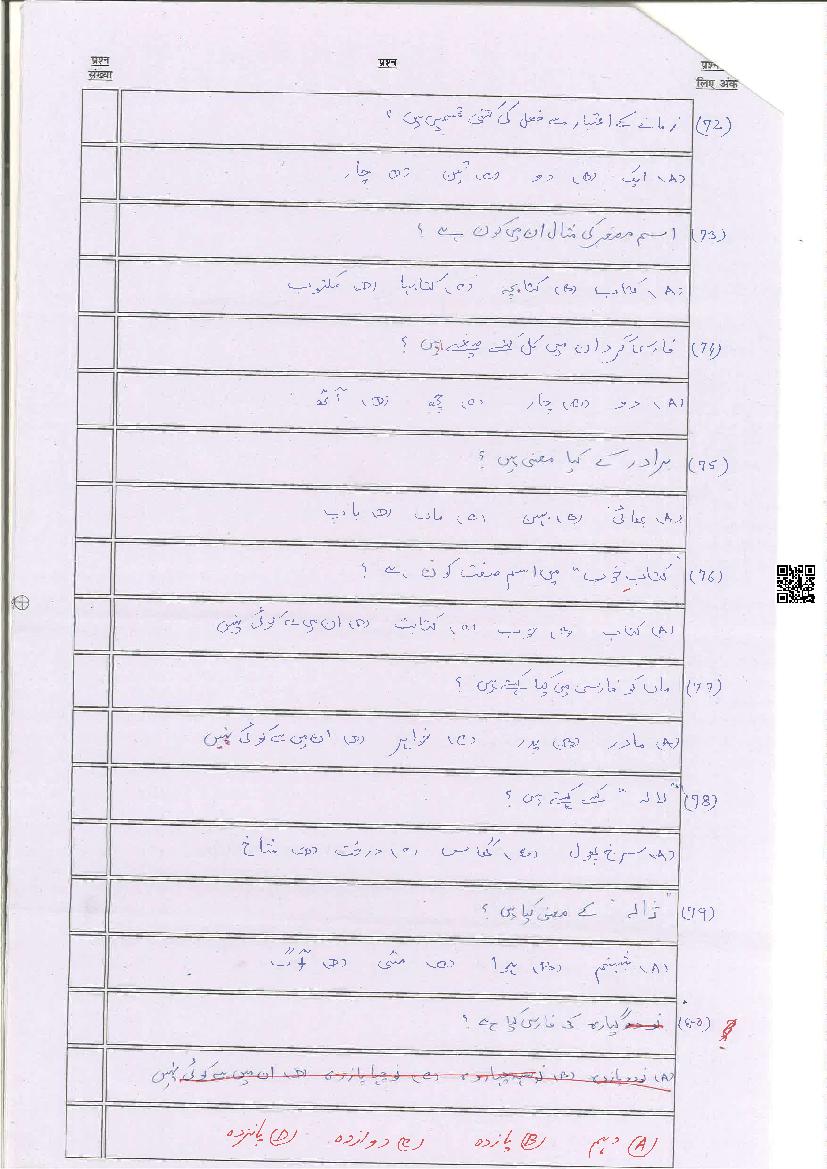 प्रश्न संख्या
प्रश्न
लिए अंक
(72) زمانے کے اعتبار سے فعل کی کتنی قسمیں ہیں ؟
(A) ایک (B) دو (C) تین (D) چار
(73) اسم مصغر کی مثال ان میں کون ہے ؟
(A) کتاب (B) کتابچہ (C) کتابہا (D) مکتوب
(74) فارسی گردان میں کل کتنے صیغے ہیں ؟
(A) دو (B) چار (C) چھ (D) آٹھ
(75) برادر کے کیا معنی ہیں ؟
(A) بھائی (B) بہن (C) ماں (D) باپ
(76) "کتابِ خوب" میں اسم صفت کون ہے ؟
(A) کتاب (B) خوب (C) کتابت (D) ان میں سے کوئی نہیں
(77) ماں کو فارسی میں کیا کہتے ہیں ؟
(A) مادر (B) پدر (C) خواہر (D) ان میں سے کوئی نہیں
(78) "لالہ" کسے کہتے ہیں ؟
(A) سرخ پھول (B) گھاس (C) درخت (D) شاخ
(79) "ژالہ" کے معنی کیا ہیں ؟
(A) شبنم (B) ہوا (C) مٹی (D) آگ
(80) گیارہ کی فارسی کیا ہے ؟
(D) ان میں سے کوئی نہیں
(A) دہم (B) یازدہ (C) دوازدہ (D) پانزدہ